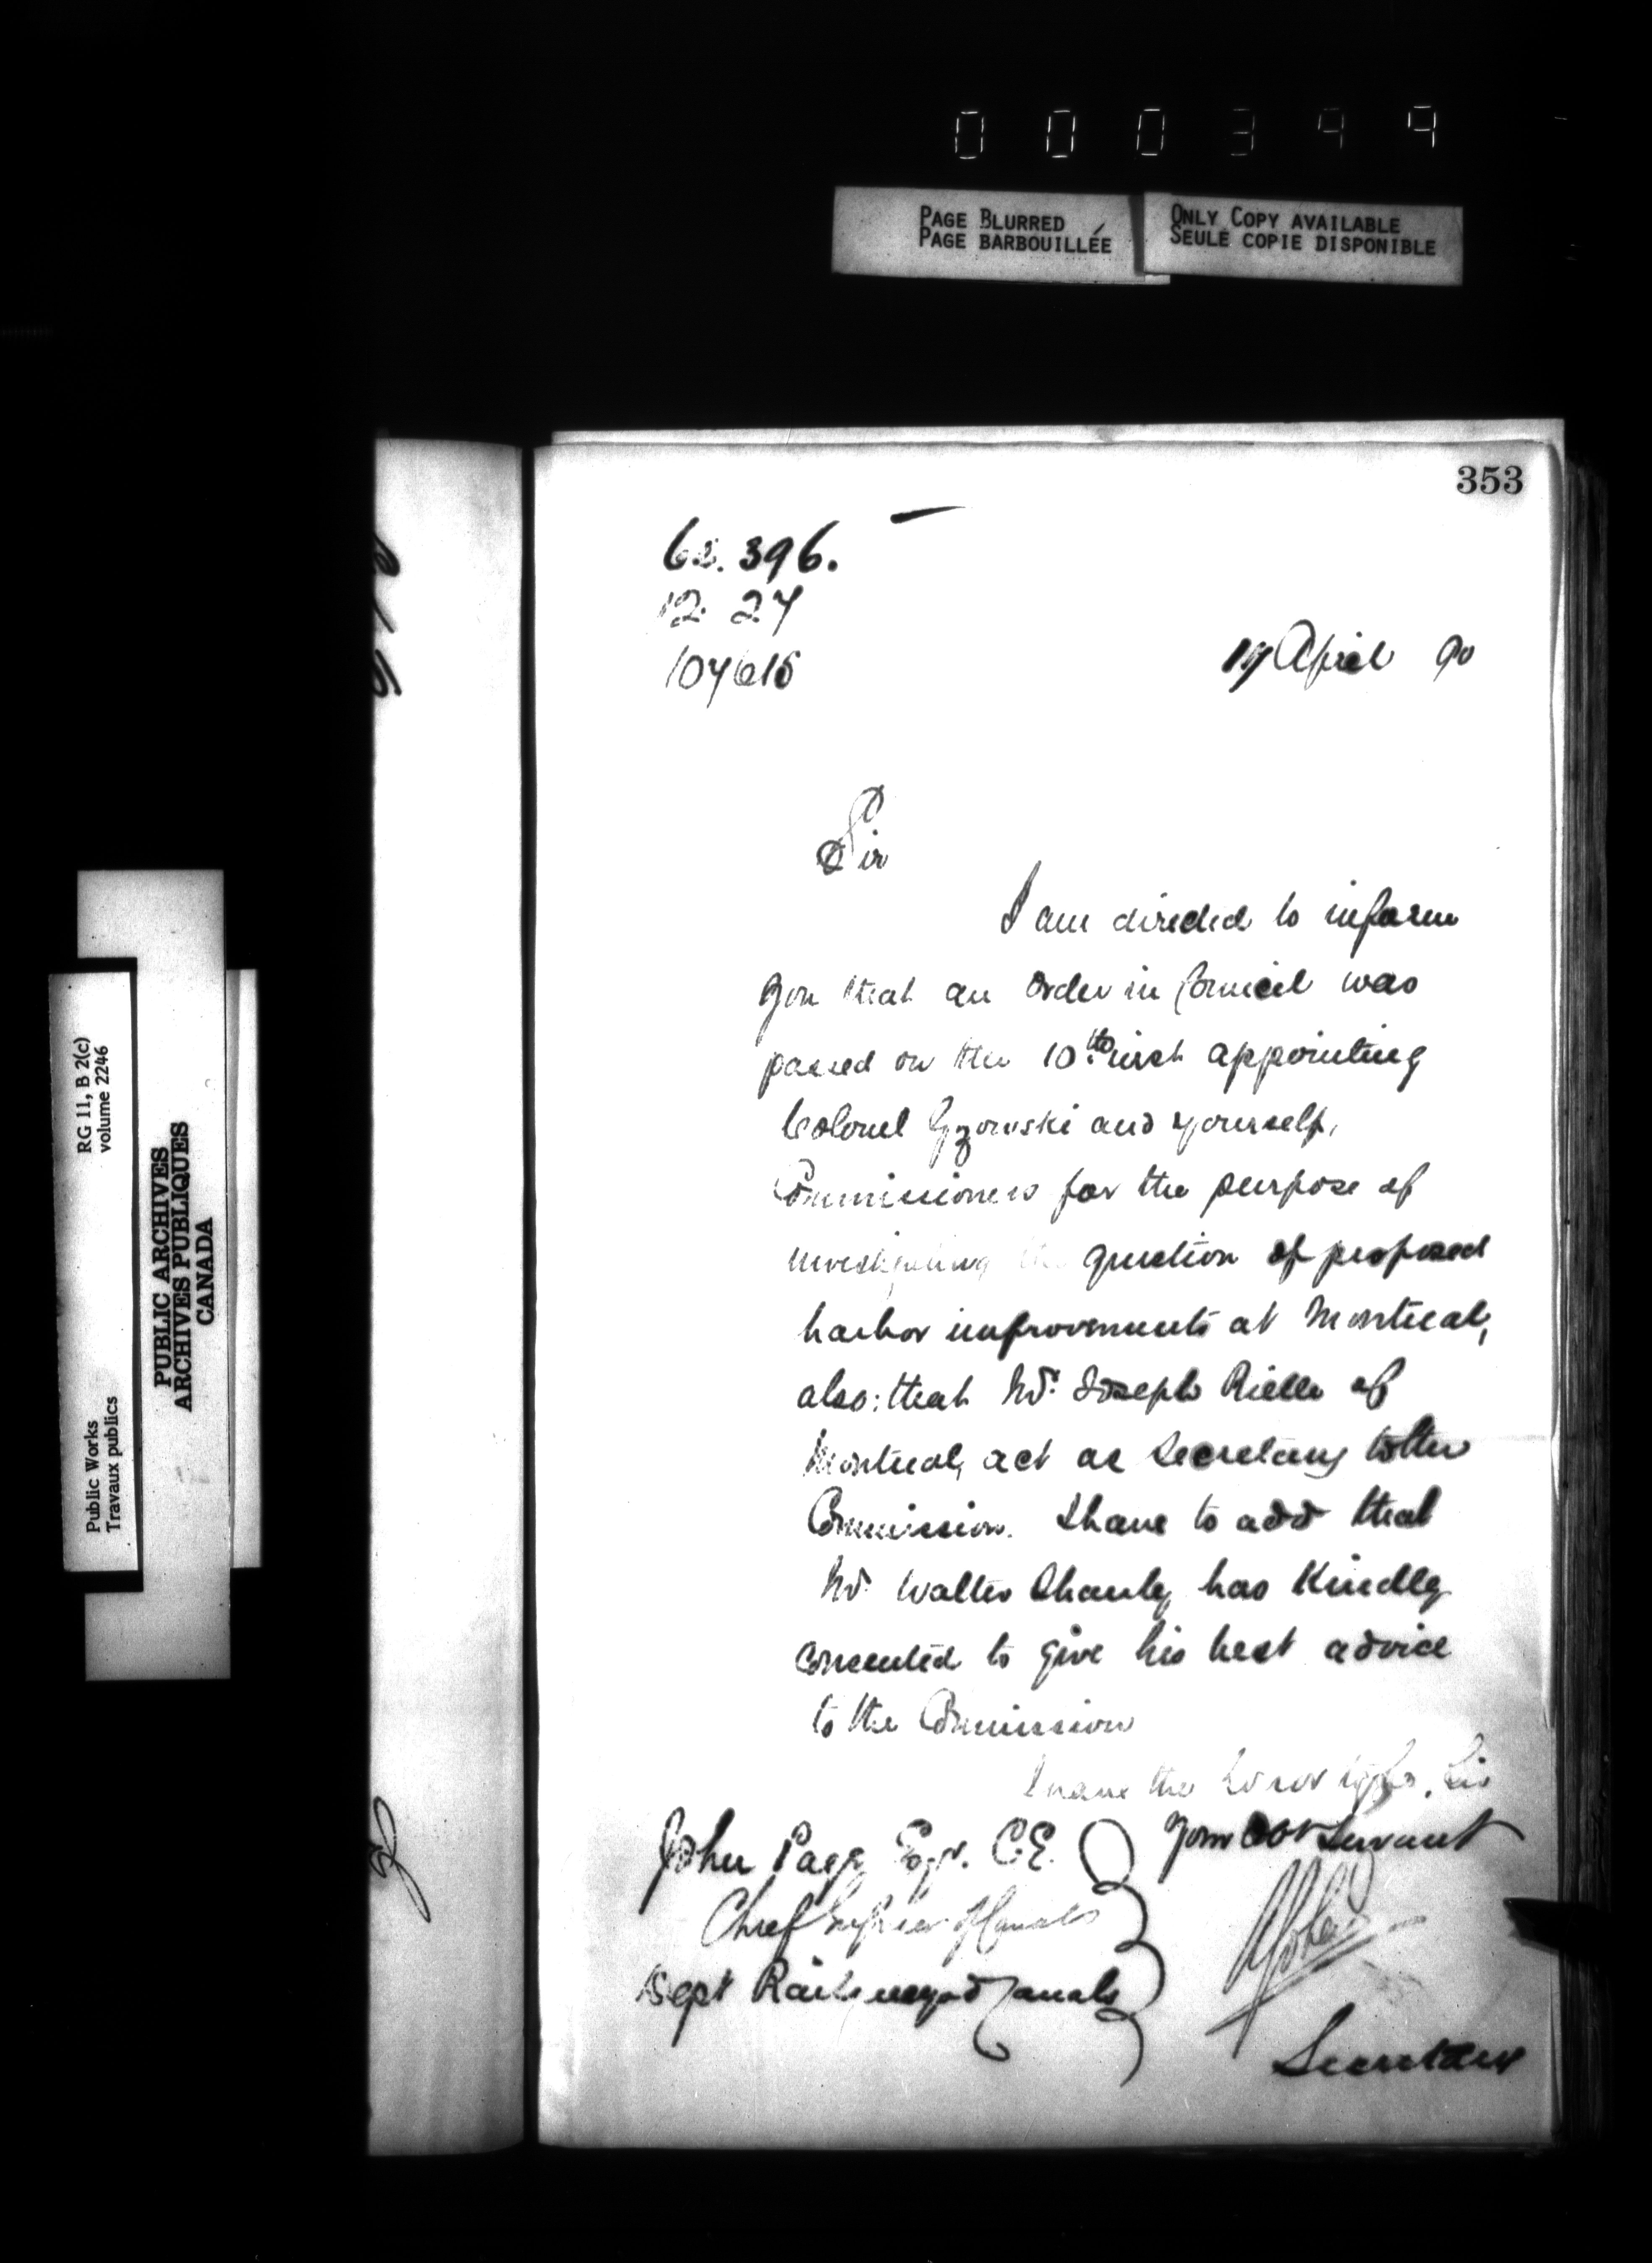 000399
PAGE BLURRED
PAGE BARBOUILLÉE
ONLY COPY AVAILABLE
SEULE COPIE DISPONIBLE
353
396.
12 27
107615
April 90
Sir
I am directed to inform
you that an Order in Council was
passed on the 10th inst appointing
Colonel Gzowski and yourself,
Commissioners for the purpose of
investigating the question of proposed
harbor improvements at Montreal,
also: that Mr. Joseph Rielle of
Montreal, act as Secretary to the
Commission. I have to add that
Mr. Walter Shanly has kindly
consented to give his best advice
to the Commission
I have the honor to be, Sir
Your Obt Servant
John Page Esqr. C.E.
Chief Engineer of Canals
Dept Railways and Canals
Secretary
RG 11, B 2(c)
volume 2246
Public Works
Travaux publics
PUBLIC ARCHIVES
ARCHIVES PUBLIQUES
CANADA